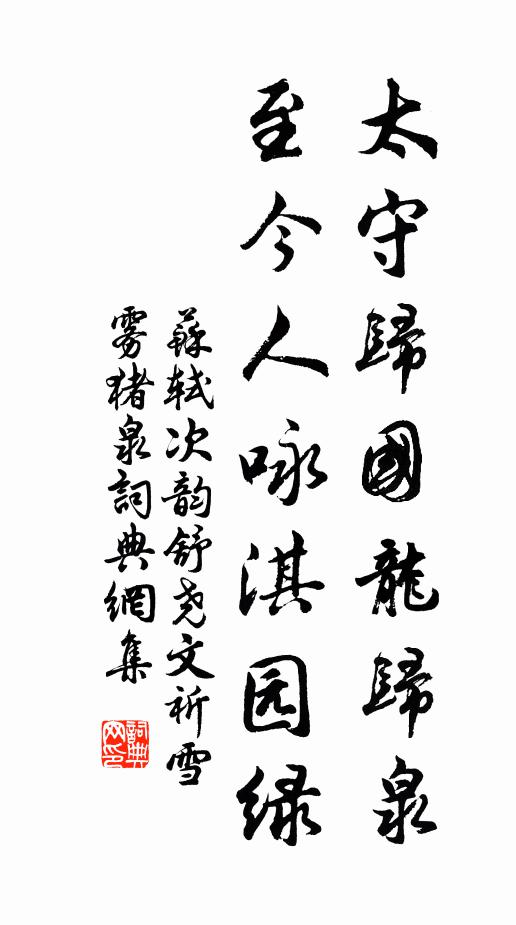 太守歸國龍歸泉
至今人咏淇园绿
蘇軾次韵舒尧文祈雪
雾猪泉詞典網集
詞典